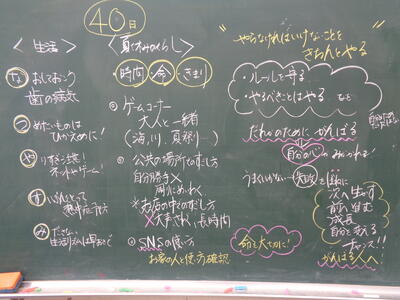 40日
<生活>
な
おしておこう
歯の病気
つ
めたいものは
ひかえめに!
や
りすぎ注意!
ネットやゲーム!
す
いぶんとって
熱中症予防
み
ださない
生活リズム
<夏休みのくらし>
時間
命
きまり
ゲームコーナー
大人と一緒
(海、川、夏祭り…)
公共の場所での過し方
自分勝手×
周りにめいわく
※お店の中での過し方
×大声さわぐ、長時間
SNSの使い方
お家の人と使い方確認
"やらなければいけないことを
きちんとやる"
・ルールを守る
・やるべきことはやる など
だれかのために がんばる
自分の心がみがかれる
うまくいかない…失敗
次に生かす
前に進む
成長
自分を変える
チャンス!!
がんばる人へ!
命を大切に!